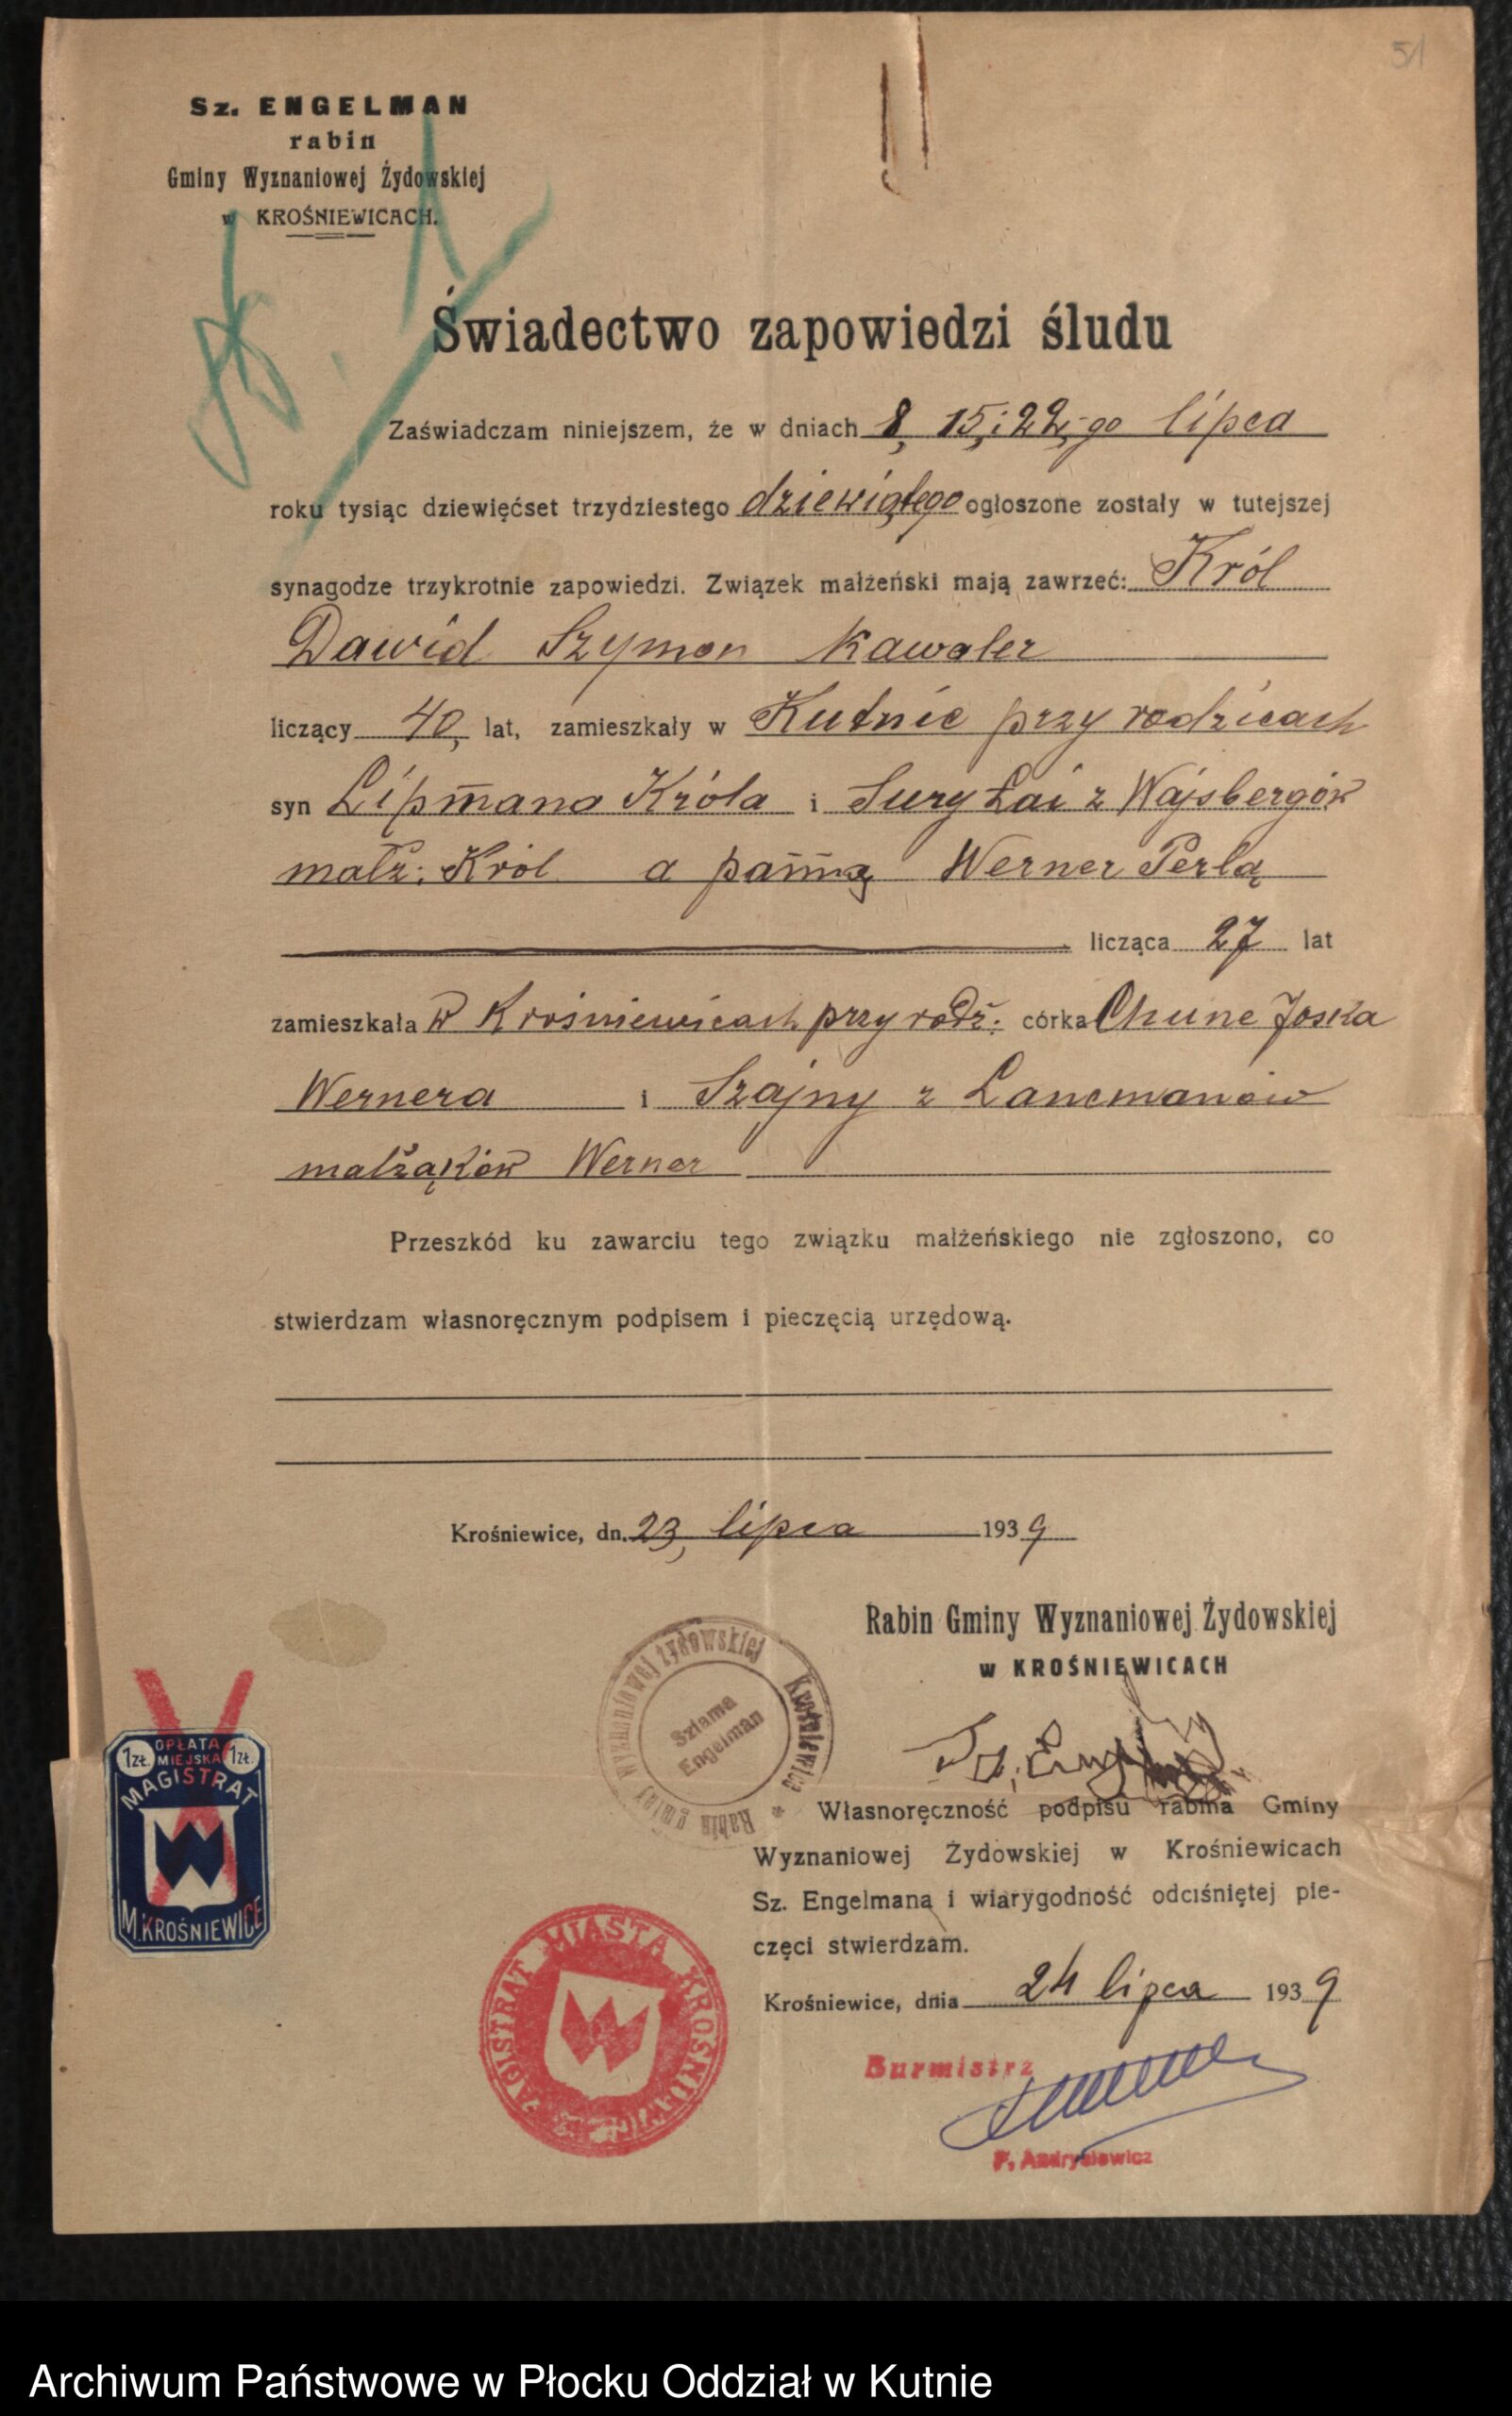 51
Sz. ENGELMAN
rabin
Gminy Wyznaniowej Żydowskiej
w KROŚNIEWICACH.
Świadectwo zapowiedzi śludu
Zaświadczam niniejszem, że w dniach 8, 15, i 22,-go lipca
roku tysiąc dziewięćset trzydziestego dziewiątego ogłoszone zostały w tutejszej
synagodze trzykrotnie zapowiedzi. Związek małżeński mają zawrzeć: Król
Dawid Szymon Kawaler
liczący 40, lat, zamieszkały w Kutnie przy rodzicach
syn Lipmana Króla i Sury Łai z Wajsbergów
małż: Król a panną Werner Perlą
licząca 27 lat
zamieszkała w Krośniewicach przy rodz: córka Chune Joska
Wernera i Szajny z Lancmanów
małżąków Werner
Przeszkód ku zawarciu tego związku małżeńskiego nie zgłoszono, co
stwierdzam własnoręcznym podpisem i pieczęcią urzędową.
Krośniewice, dn. 23, lipca 1939
Rabin Gminy Wyznaniowej Żydowskiej
w KROŚNIEWICACH
Rabin gminy Wyznaniowej żydowskiej Krośniewice *
Szlama
Engelman
Własnoręczność podpisu rabina Gminy
Wyznaniowej Żydowskiej w Krośniewicach
Sz. Engelmana i wiarygodność odciśniętej pie-
częci stwierdzam.
Krośniewice, dnia 24 lipca 1939
Burmistrz
F. Andrysiewicz
1 ZŁ. OPŁATA MIEJSKA 1 ZŁ.
MAGISTRAT
M. KROŚNIEWICE
MAGISTRAT MIASTA KROŚNIEWICE
Archiwum Państwowe w Płocku Oddział w Kutnie